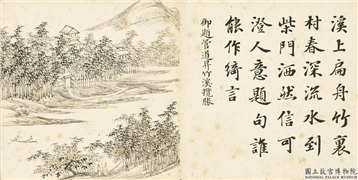 溪上扁舟竹裏
村春深流水到
柴門洒然信可
澄人意題句誰
能作綺言
御題管道昇竹溪攬勝
國立故宮博物院
NATIONAL PALACE MUSEUM